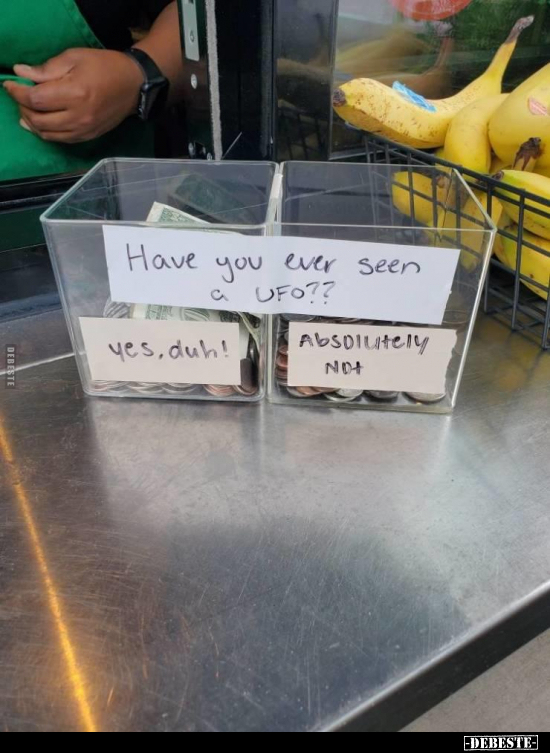 Have you ever seen
a UFO??
yes, duh!
Absolutely
Not
DEBESTE
-DEBESTE-